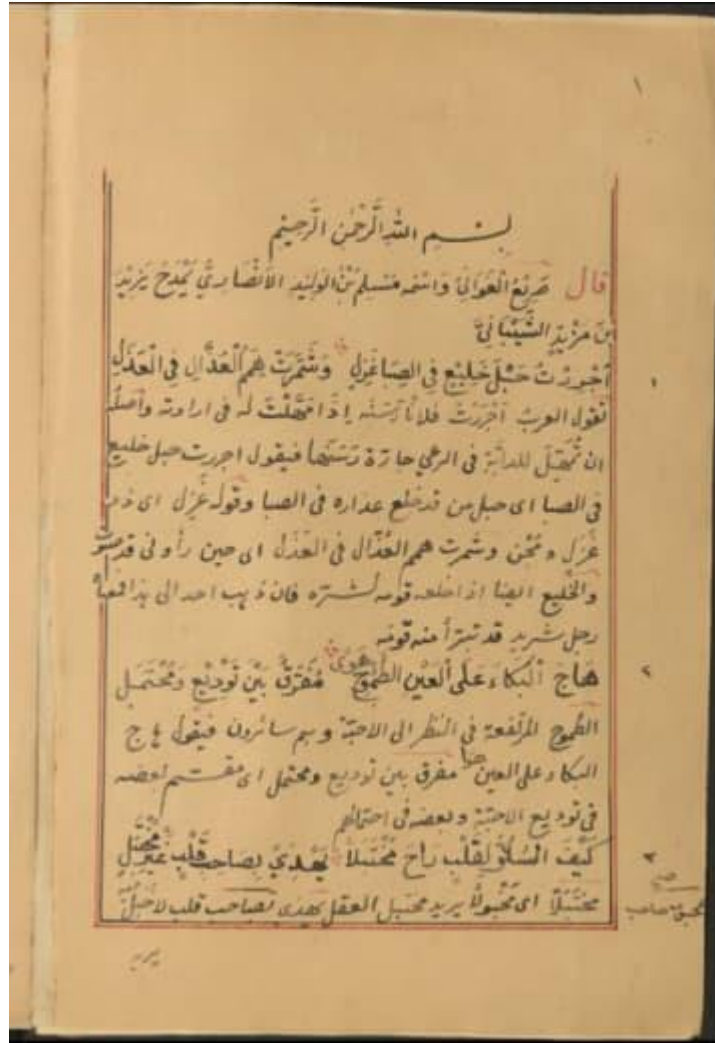 ١
بسم الله الرحمن الرحيم
قال صريع الغواني واسمه مسلم بن الوليد الانصاري يمدح يزيد
بن مزيد الشيباني
اجررت حبل خليع في الصبا غزل وشمرت همم العذال في العذل
١
تقول العرب اجررت فلانا رسنه اذا مهلت له في ارادته واصله
ان تمهل للدابة في الرعي جارة رسنها فيقول اجررت حبل خليع
في الصبا اى حبل من قد خلع عذاره في الصبا وقوله غزل اى ذى
غزل ومجن وشمرت همم العذال في العذل اى حين رأونى قد
والخليع ايضا اذا خلعه قومه لشره فان ذهب احد الى هذا فمعناه
رجل شرير قد تبرأ منه قومه
هاج البكاء على العين الطموح هوى مفرق بين توديع ومحتمل
٢
الطموح المرتفعة في النظر الى الاحبة وهم سائرون فيقول هاج
البكاء على العين هوا مفرق بين توديع ومحتمل اى مقتسم بعضه
في توديع الاحبة وبعضه في احتمالهم
كيف السلو لقلب راح مختبلا يهذى بصاحب قلب غير مختبل
٣
مختبلا اى مخبولا يريد مختبل العقل يهذى بصاحب قلب لا خبل
صاحب
يريد